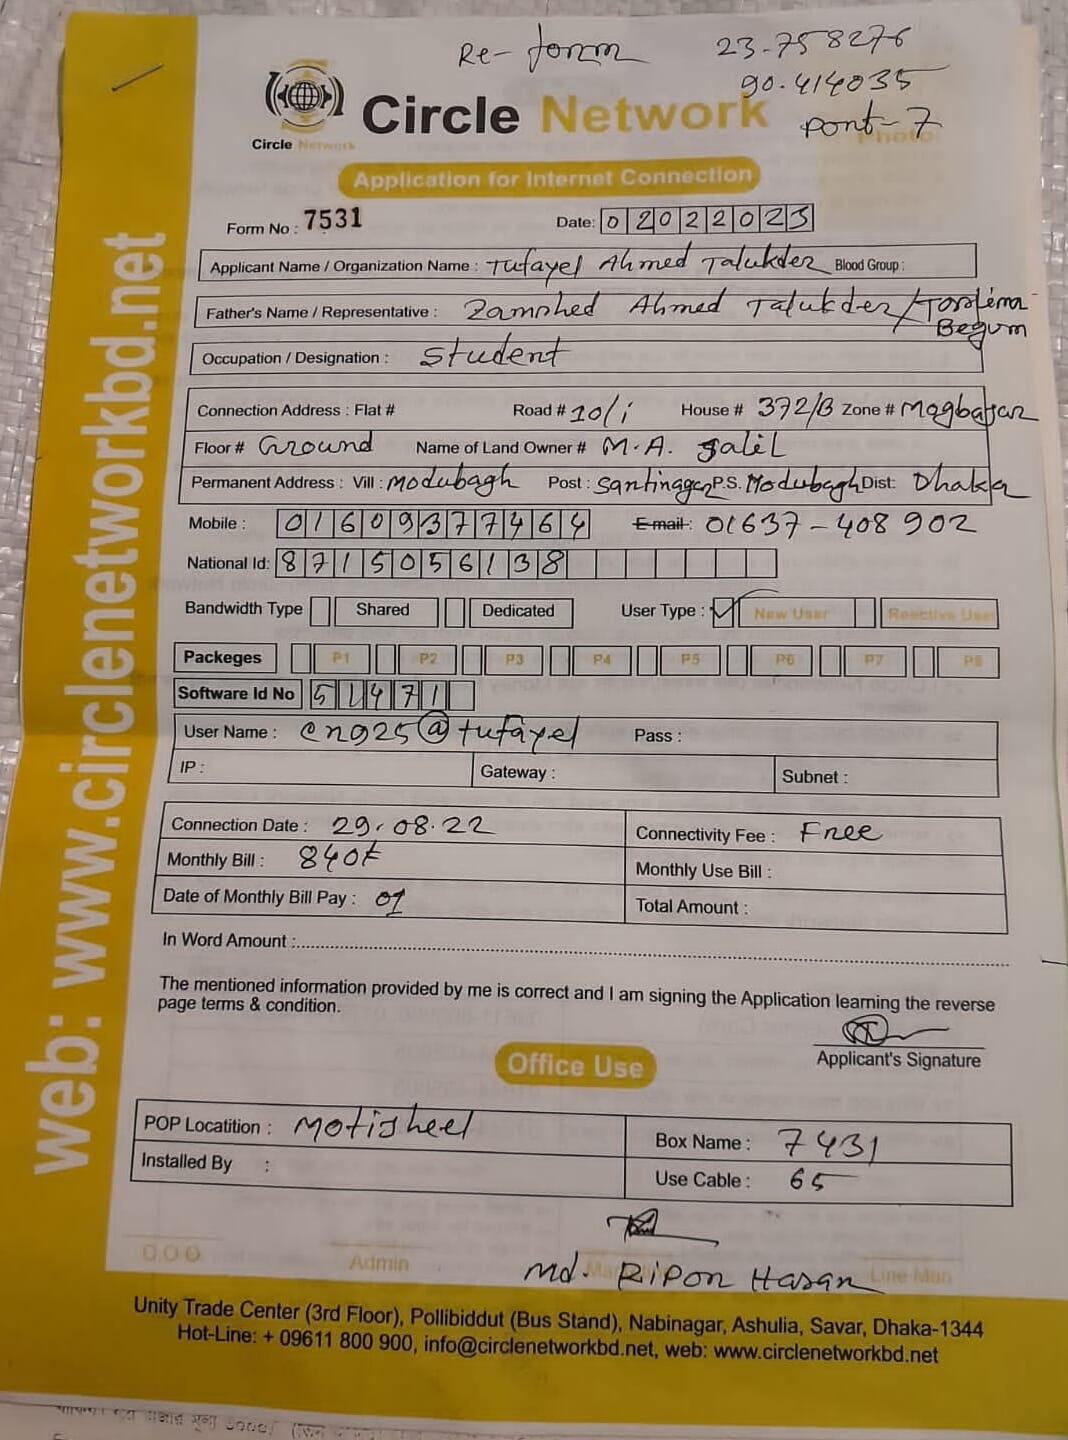 Re-form 23.758276
90.414035
Circle Network Port-7
Circle Network Photo
Application for Internet Connection
Form No : 7531 Date: 02022023
Applicant Name / Organization Name : Tufayel Ahmed Talukder Blood Group :
Father's Name / Representative : Zamshed Ahmed Talukder/Taslima
Begum
Occupation / Designation : Student
Connection Address : Flat # Road # 10/i House # 372/B Zone # Mogbazar
Floor # Ground Name of Land Owner # M.A. Jalil
Permanent Address : Vill : Modubagh Post : Santinagar P.S. Modubagh Dist: Dhaka
Mobile : 01609377464 E-mail : 01637-408902
National Id: 8715056138
Bandwidth Type Shared Dedicated User Type : New User Reactive User
Packeges P1 P2 P3 P4 P5 P6 P7 P8
Software Id No 51471
User Name : cng25@tufayel Pass :
IP : Gateway : Subnet :
Connection Date : 29.08.22 Connectivity Fee : Free
Monthly Bill : 840 Monthly Use Bill :
Date of Monthly Bill Pay : 01 Total Amount :
In Word Amount :
The mentioned information provided by me is correct and I am signing the Application learning the reverse
page terms & condition.
Applicant's Signature
Office Use
POP Locatition : Motijheel Box Name : 7431
Installed By : Use Cable : 65
D.O.O Admin Line Man
Md. Ripon Hasan
Unity Trade Center (3rd Floor), Pollibiddut (Bus Stand), Nabinagar, Ashulia, Savar, Dhaka-1344
Hot-Line: + 09611 800 900, info@circlenetworkbd.net, web: www.circlenetworkbd.net
web: www.circlenetworkbd.net